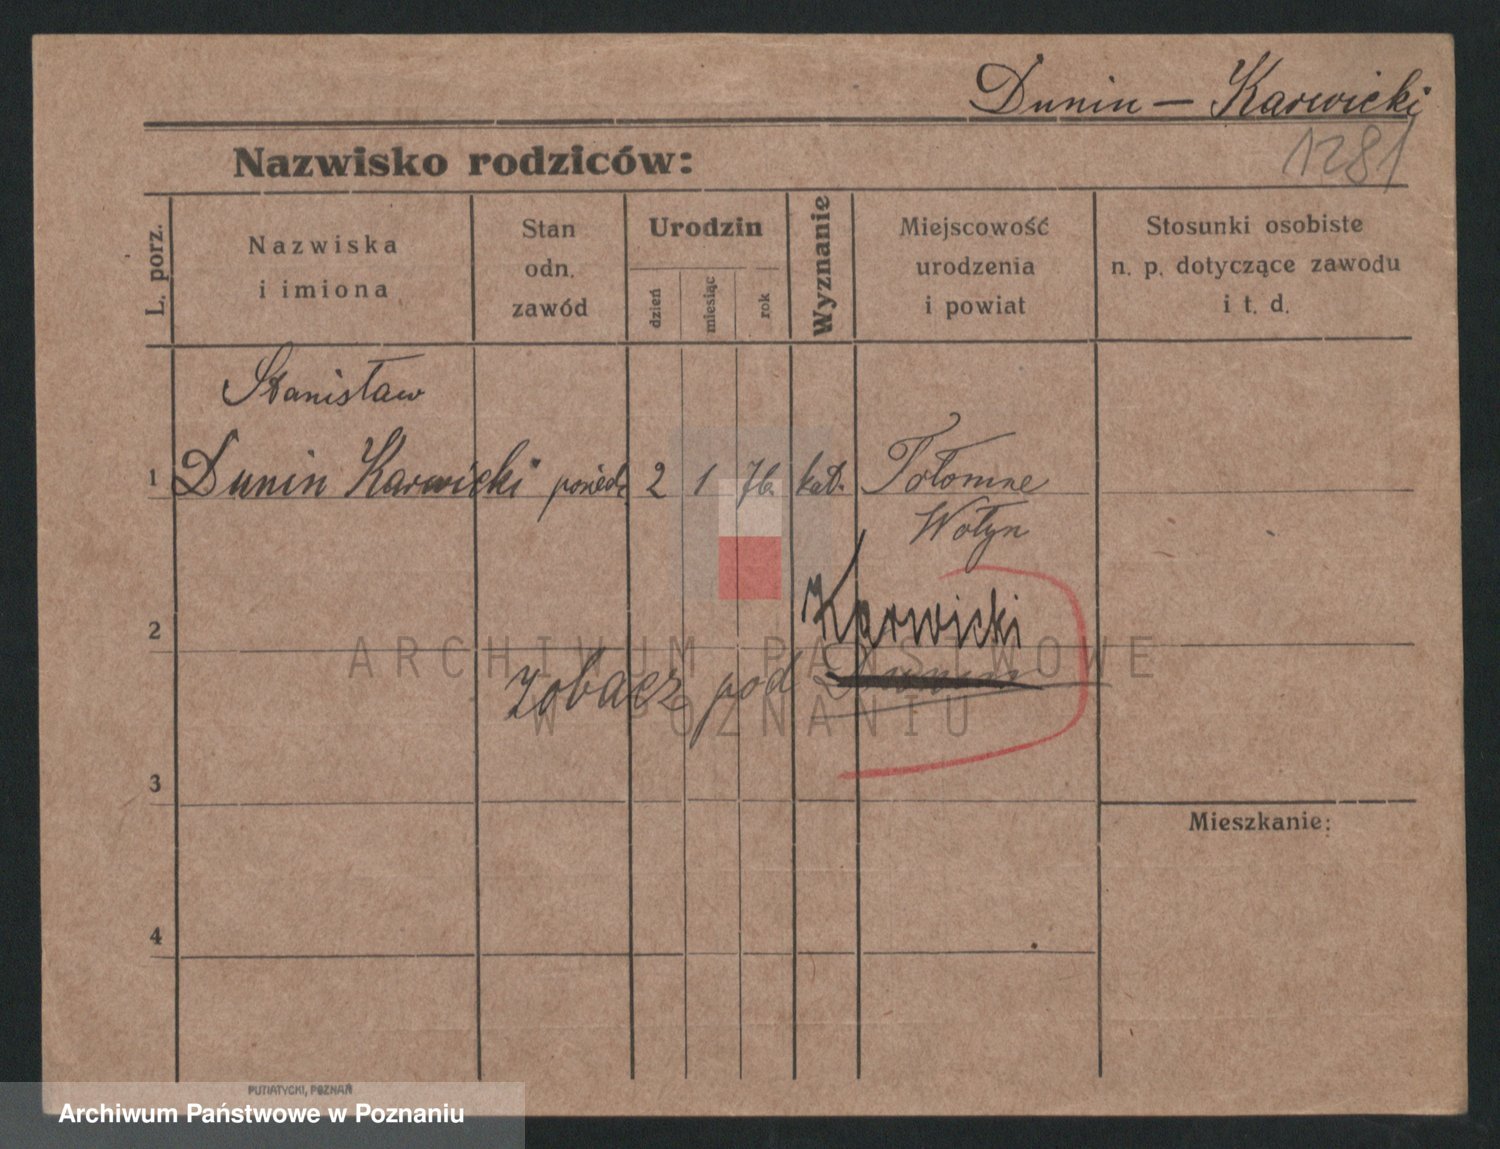 Dunin - Karwicki
1281
Nazwisko rodziców:
L. porz.
Nazwiska
i imiona
Stan
odn.
zawód
Urodzin
dzień
miesiąc
rok
Wyznanie
Miejscowość
urodzenia
i powiat
Stosunki osobiste
n. p. dotyczące zawodu
i t. d.
Stanisław
1 Dunin Karwicki posiedz 2 1 76 kat.
Wołyn
Karwicki
2
zobacz pod Dunin
3
Mieszkanie:
4
ARCHIWUM PAŃSTWOWE
W POZNANIU
PUTIATYCKI, POZNAŃ
Archiwum Państwowe w Poznaniu